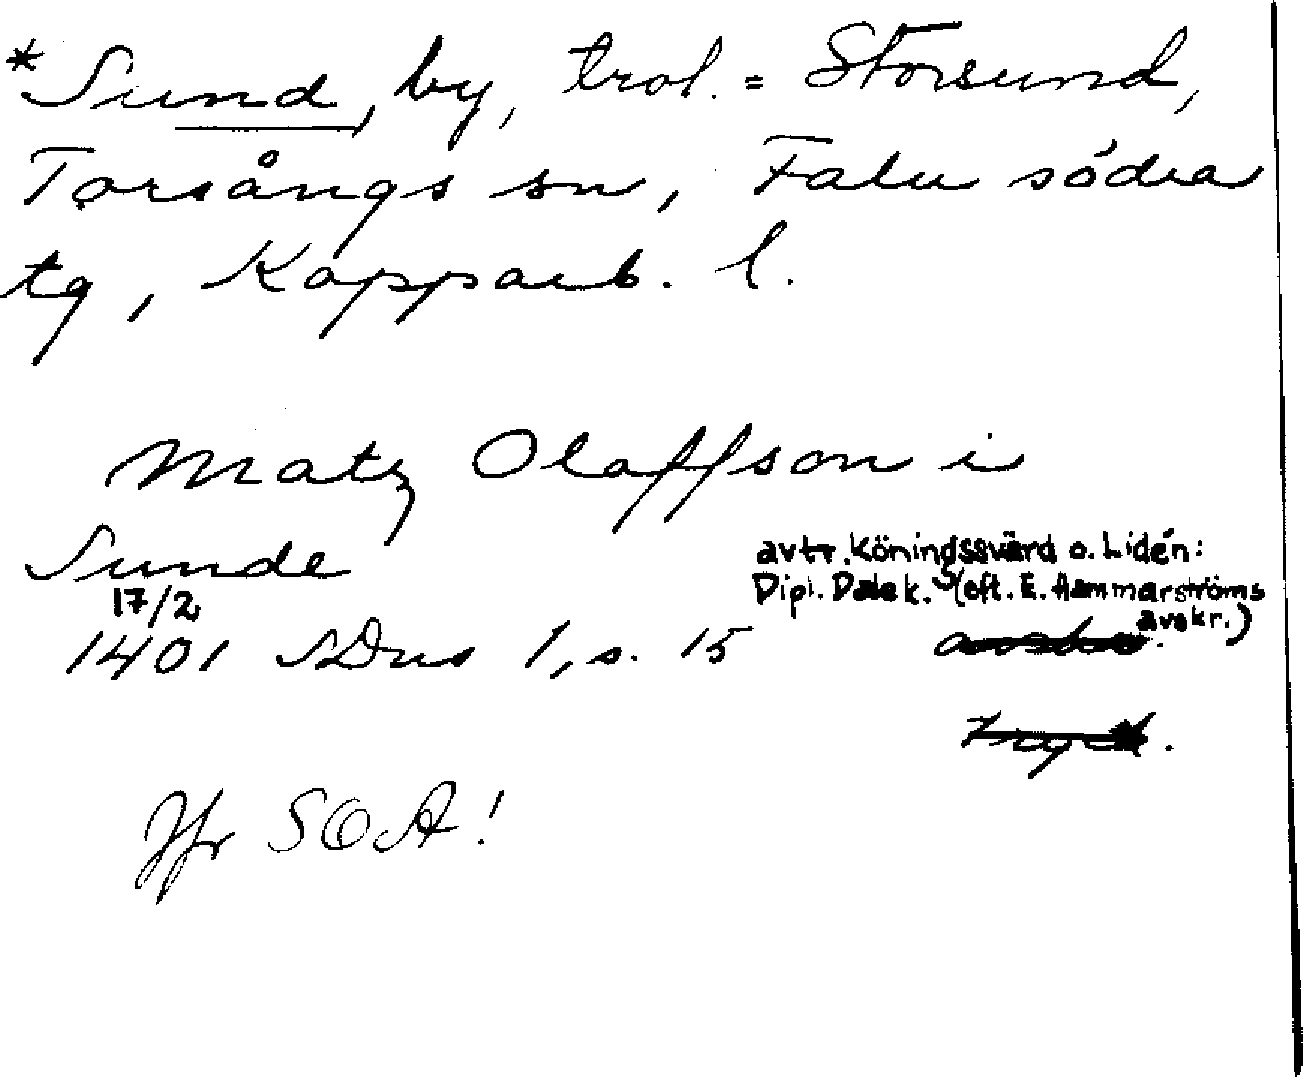 *Sund, by, trol. = Storsund,
Torsångs sn, Falu södra
tg, Kopparb. l.
Matz Olaffson i
Sunde
avtr. Köningssvärd o. Lidén:
Dipl. Dalek. (eft. E. Hammarströms
avskr.)
17/2
1401 SDns 1, s. 15
Jfr SOÄ!